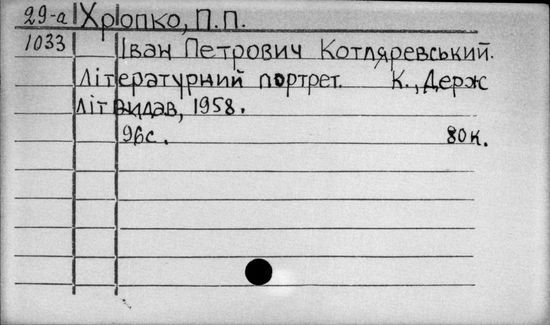 29-а Хропко, П.П.
1033 Іван Петрович Котляревський.
Літературний портрет. К., Держ
Літвидав, 1958.
96с. 80к.